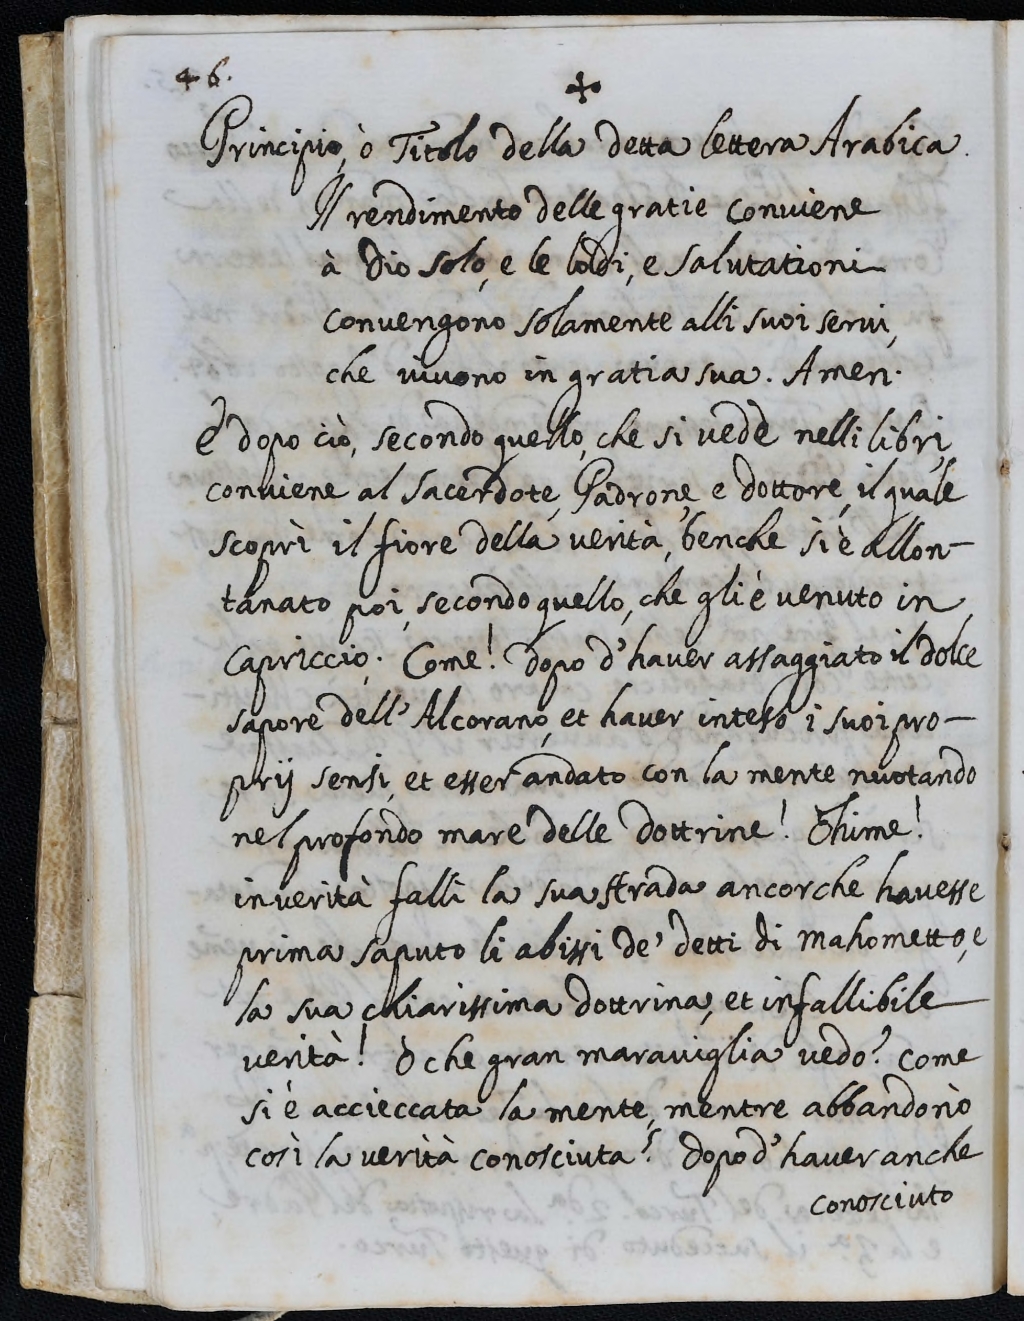 46.
Principio, ò Titolo della detta lettera Arabica.
Il rendimento delle gratie conviene
à Dio solo, e le lodi, e salutationi
convengono solamente alli suoi servi,
che vivono in gratia sua. Amen.
E dopo ciò, secondo quello, che si vede nelli libri,
conviene al Sacerdote, Padrone, e dottore, il quale
scoprì il fiore della verità, benche si è allon-
tanato poi, secondo quello, che gli è venuto in
Capriccio. Come! dopo d'haver assaggiato il dolce
sapore dell'Alcorano, et haver inteso i suoi pro-
prij sensi, et esser andato con la mente nuotando
nel profondo mare delle dottrine! Ohime!
in verità fallì la sua strada ancorche havesse
prima saputo li abissi de' detti di Mahometto, e
la sua chiarissima dottrina, et infallibile
verità! O che gran maraviglia vedo? Come
si è accieccata la mente, mentre abbandonò
così la verità conosciuta? dopo d'haver anche
conosciuto